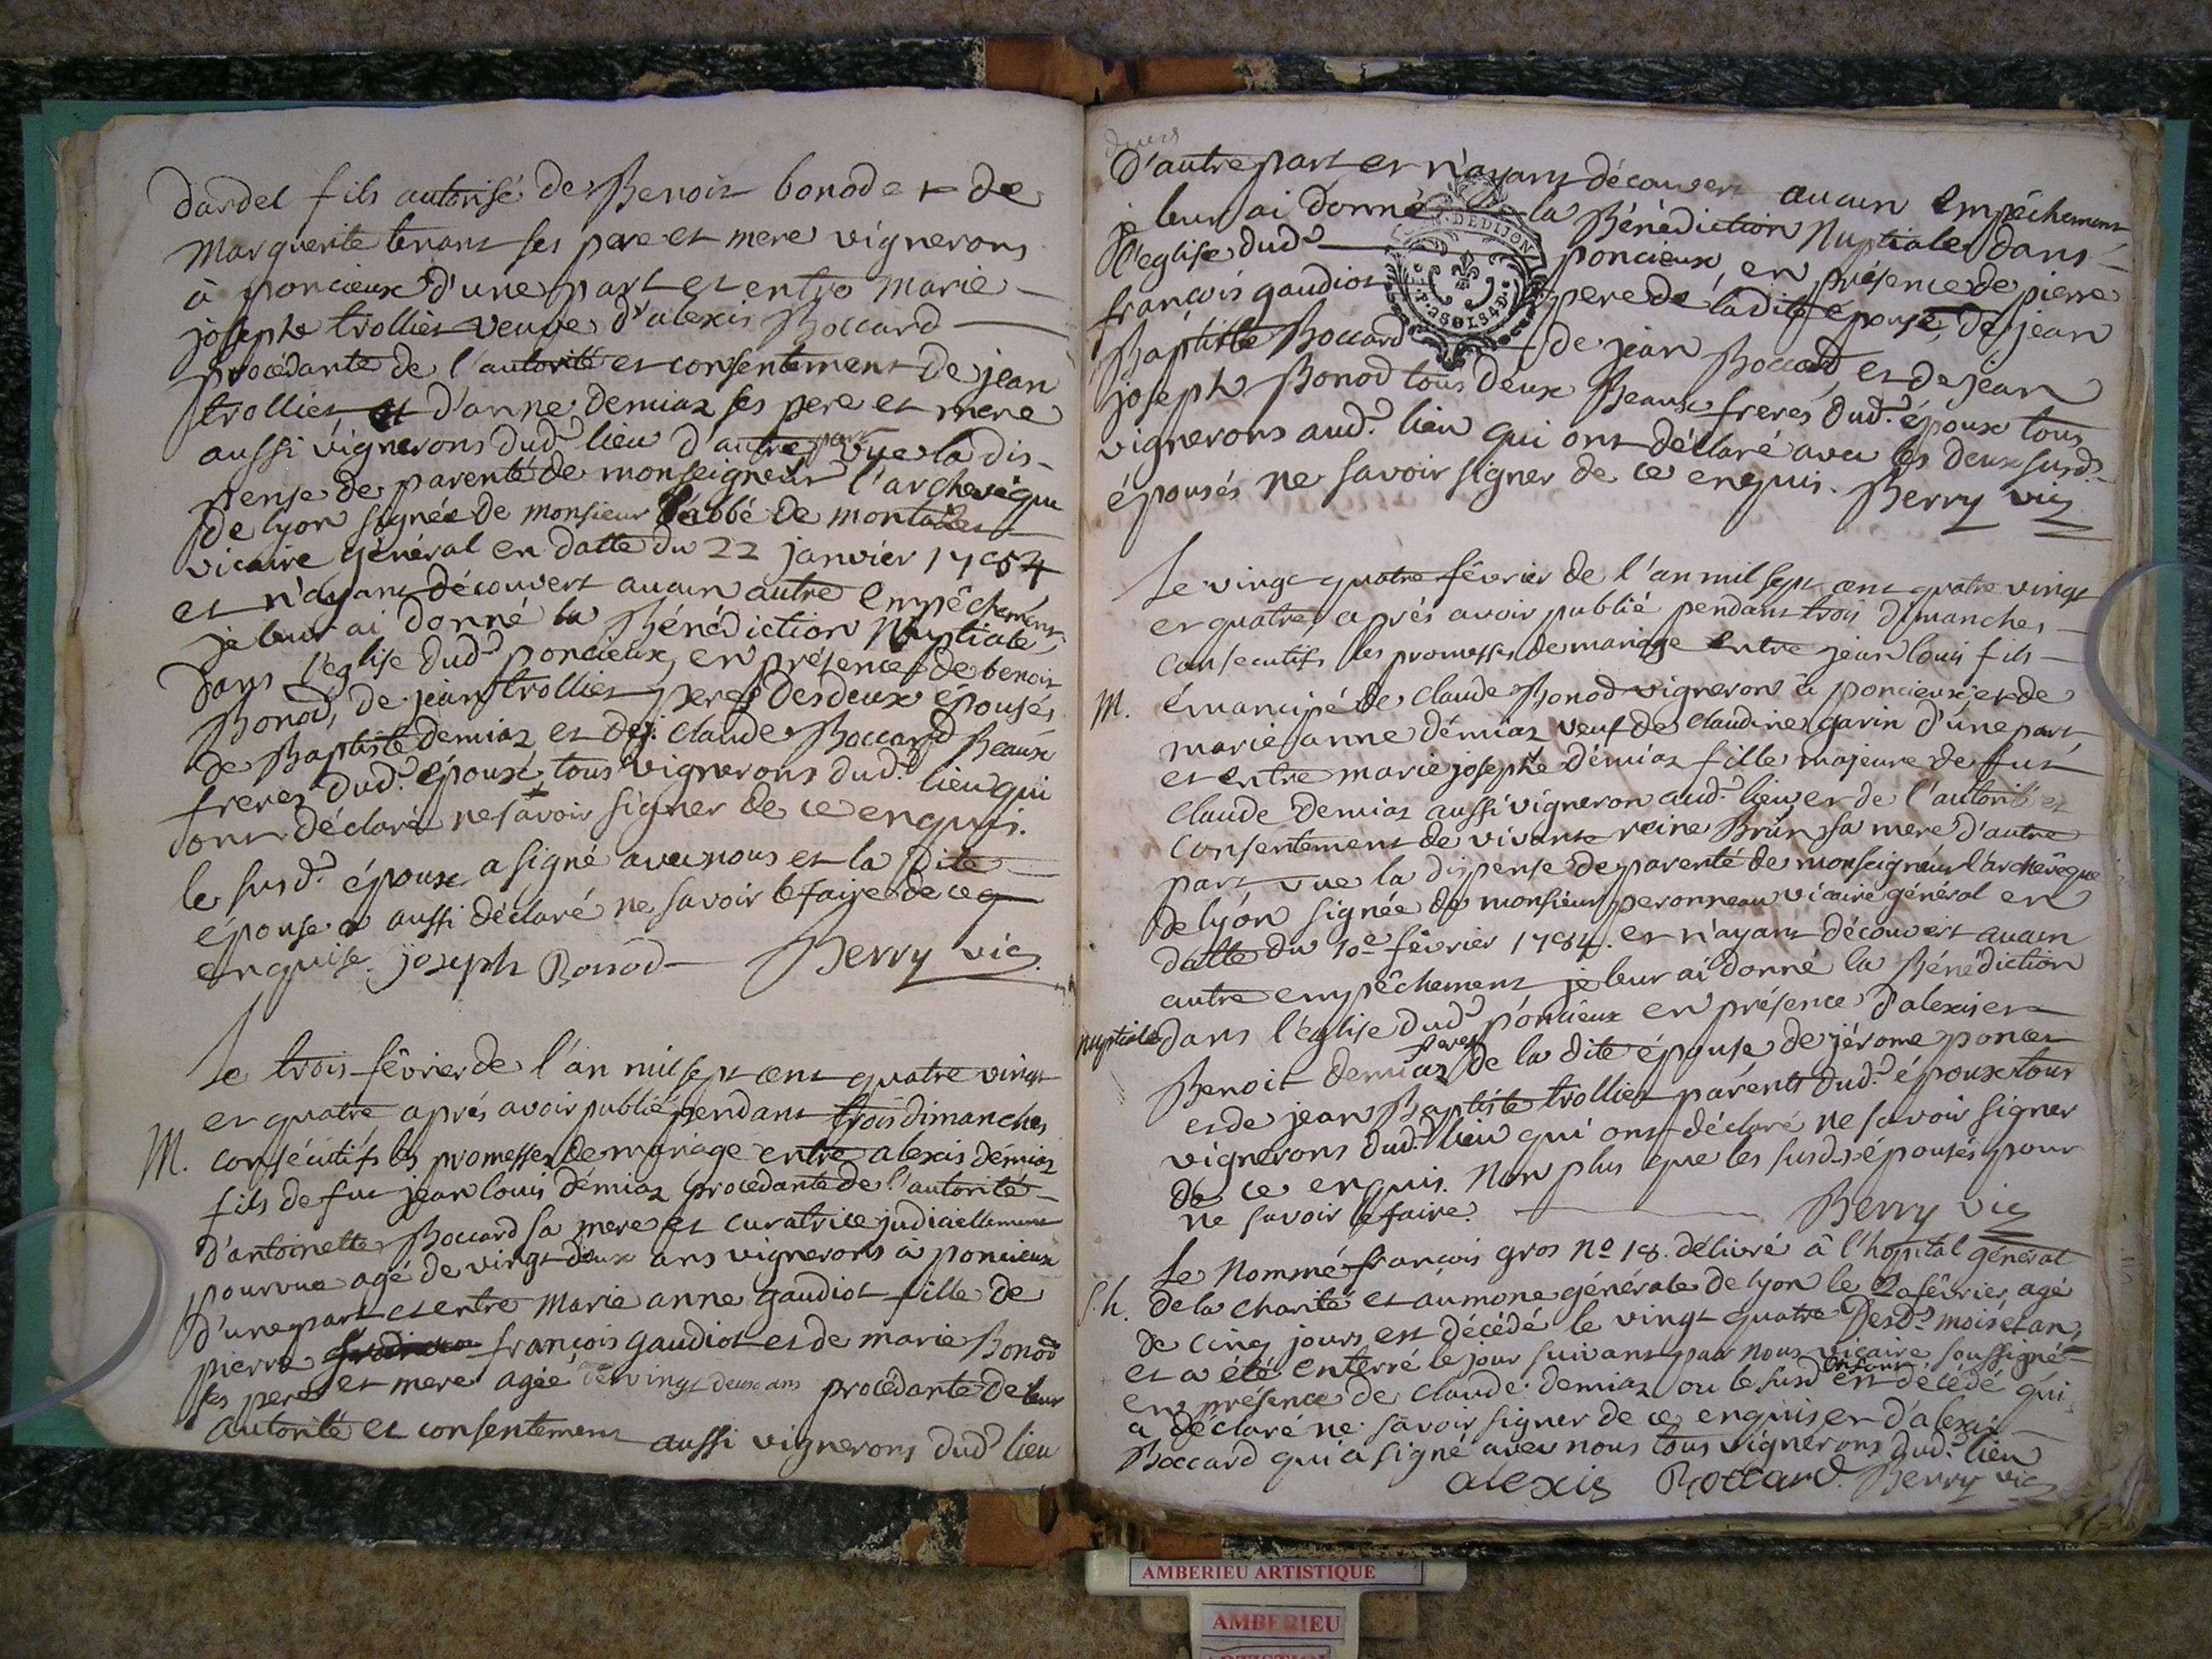 dardel fils autorisé de Benoit bonod et de
Marguerite tenant ses pere et mere vignerons
à poncieux d'une part et entre Marie
josephe trollier veuve d'alexis Boccard
procédante de l'autorité et consentement de jean
trollier et d'anne demiaz ses pere et mere
aussi vignerons dud. lieu d'autre part vue la dis-
pense de parenté de monseigneur l'archevêque
de lyon signée de monsieur l'abbé de
vicaire général en datte du 22 janvier 1784
et n'ayant découvert aucun autre empêchement
je leur ai donné la Bénédiction Nuptiale
dans l'eglise dud. poncieux en présence de benoit
Bonod, de jean trollier peres des deux épousés
de Baptiste demiaz et de j. claude Boccard Beaux
freres dud. époux, tous vignerons dud. lieu qui
ont déclaré ne savoir signer de ce enquis.
le susd. époux a signé avec nous et la dite
épouse a aussi déclaré ne savoir le faire de ce
enquise. joseph Bonod Berry vic.
Le trois fêvrier de l'an mil sept cent quatre vingt
et quatre, aprés avoir publié pendant trois dimanches
M. consécutifs les promesses de mariage entre alexis démiaz
fils de fut jean louis démiaz procédante de l'autorité
d'antoinette Boccard sa mere et curatrice judiciellement
pourvue agé de vingt deux ans vignerons à poncieux
d'une part et entre Marie anne gaudiot fille de
pierre françois gaudiot et de marie Bonod
ses pere et mere agée de vingt deux ans procédante de leur
autorité et consentement aussi vignerons dud. lieu
d'autre part et n'ayant découvert aucun Empêchement
je leur ai donné la Bénédiction Nuptiale dans
l'eglise dud. poncieux, en présence de pierre
françois gaudiot pere de ladite épouse, de jean
Baptiste Boccard de jean Boccard, et de jean
joseph Bonod tous deux Beaux freres dud. époux tous
vignerons aud. lieu qui ont déclaré avec les deux susd.
épousés ne savoir signer de ce enquis. Berry vic
N. DE DIJON
Le vingt quatre fêvrier de l'an mil sept cent quatre vingt
et quatre, aprés avoir publié pendant trois dimanches
consecutifs les promesses de mariage entre jean louis fils
M. émancipé de claude Bonod vigneron à poncieux et de
marie anne démiaz veuf de claudine garin d'une part
et entre marie josephe démiaz fille majeure de fut
claude demiaz aussi vigneron aud. lieu et de l'autorité et
consentement de vivante reine Brun sa mere d'autre
part, vue la dispense de parenté de monseigneur l'archevêque
de lyon signée de monsieur peronneau vicaire général en
datte du 10e fêvrier 1784. et n'ayant découvert aucun
autre empêchement je leur ai donné la Bénédiction
nuptiale dans l'église dud. poncieux en présence d'alexis et
Benoit demiaz freres de la dite épouse, de jérome poncet
et de jean Baptiste trollier parents dud. époux tous
vignerons dud. lieu qui ont déclaré ne savoir signer
de ce enquis. Non plus que les susd. épousés pour
ne savoir le faire. Berry vic
Le Nommé françois gros No 18. délivré â l'hopital général
S.h. de la charité et aumône générale de lyon le 20 fêvrier, agé
de cinq jours est décédé le vingt quatre desd. mois et an,
et a été enterré le jour suivant par nous vicaire soussigné
en présence de claude demiaz ou le susd enfant est décédé qui
a déclaré ne savoir signer de ce enquis et d'alexis
Boccard qui a signé avec nous tous vignerons dud. lieu
alexis Boccard. Berry vic
AMBERIEU ARTISTIQUE
AMBERIEU
ARTISTIQUE